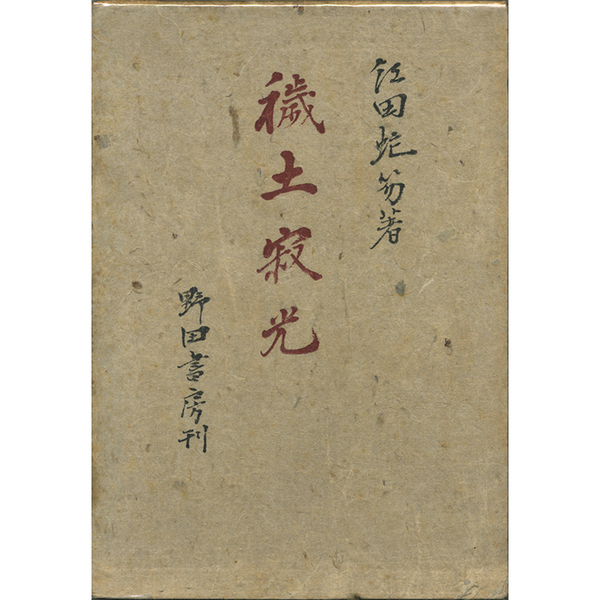 飯田蛇笏著
穢土寂光
野田書房刊